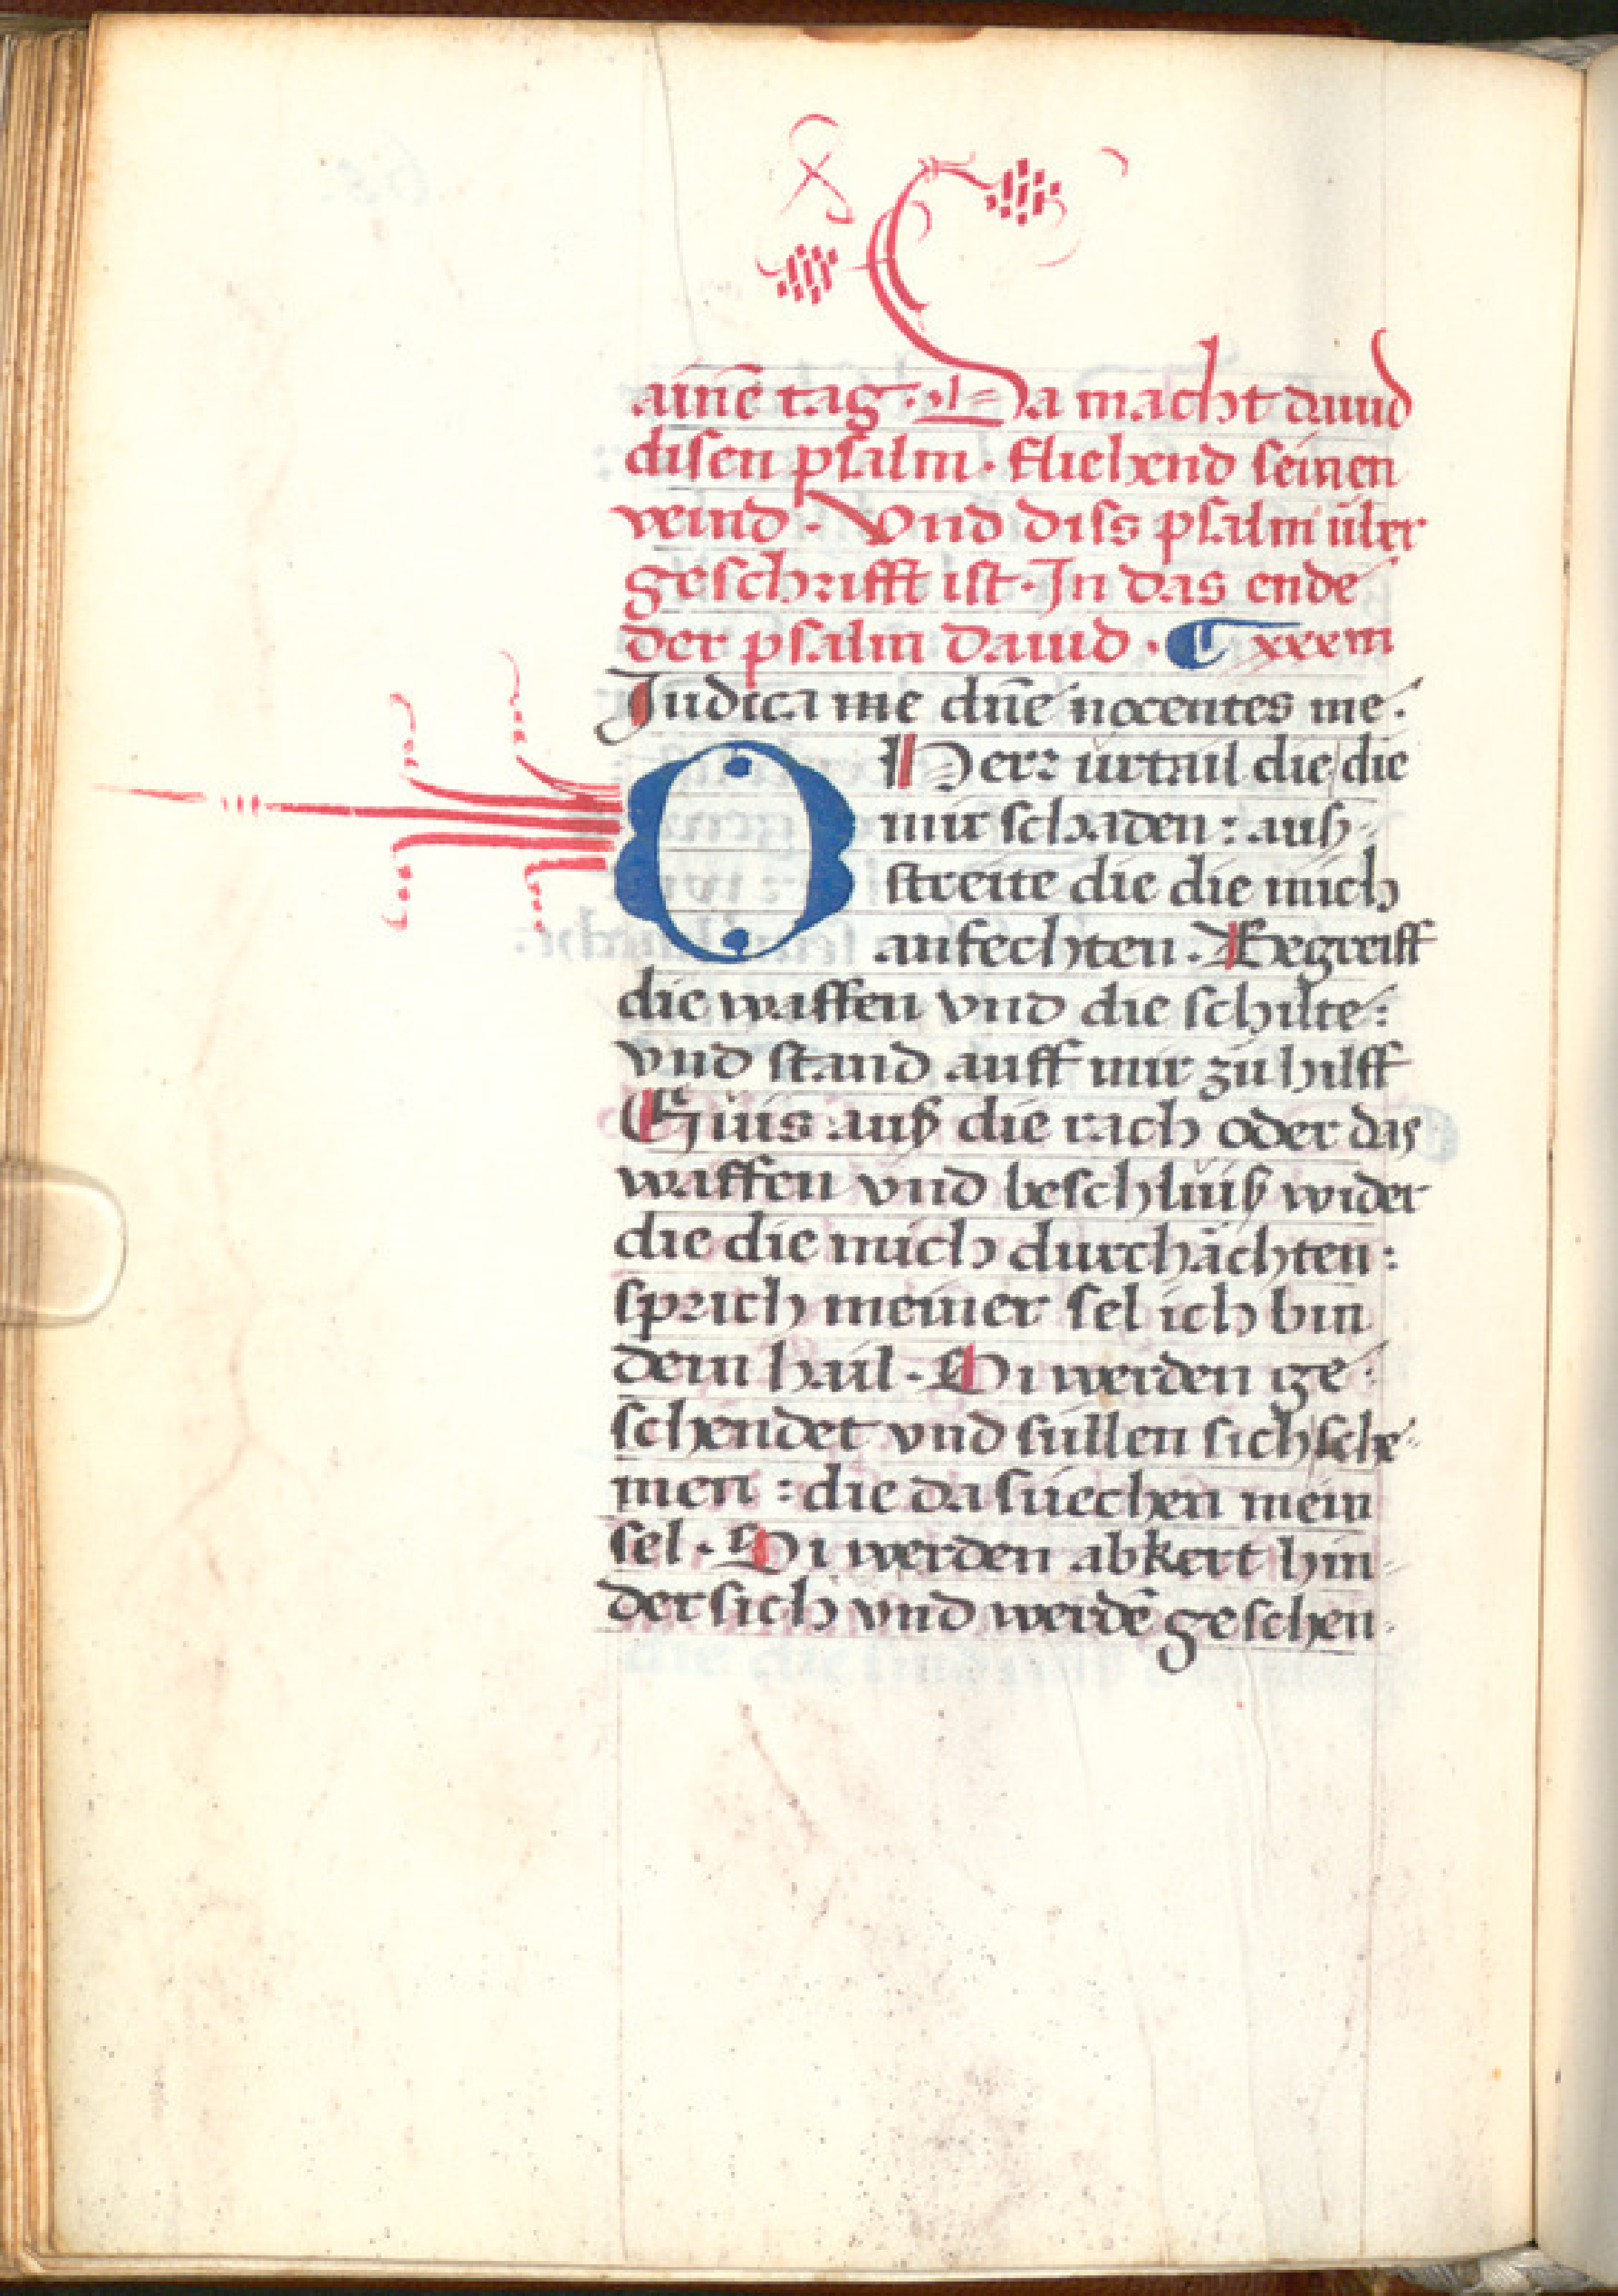 ainē tag · Da macht dauid
disen psalm · fliehend seinen
veind · Vnd diss psalm über
geschrifft ist · In das ende
der psalm dauid · xxxiiii
Iudica me dn̄e nocentes me ·
O Herr ürtail die die
mir schaden : auß
streite die die mich
anfechten · Begreiff
die waffen vnd die schilte :
vnd stand auff mir zů hilff
Güis auß die rach oder das
waffen vnd beschlüiß wider
die die mich durchächten :
sprich meiner sel ich bin
dein hail · Si werden ge
schendet vnd süllen sich sche
men : die da süechen mein
sel · Si werden abkert hin
der sich vnd werdē geschen